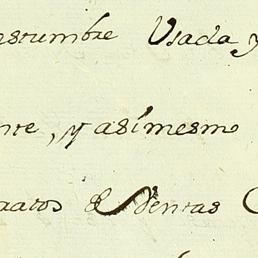 estumbre Usada y
nte, y asimesmo
ratos & Ventas